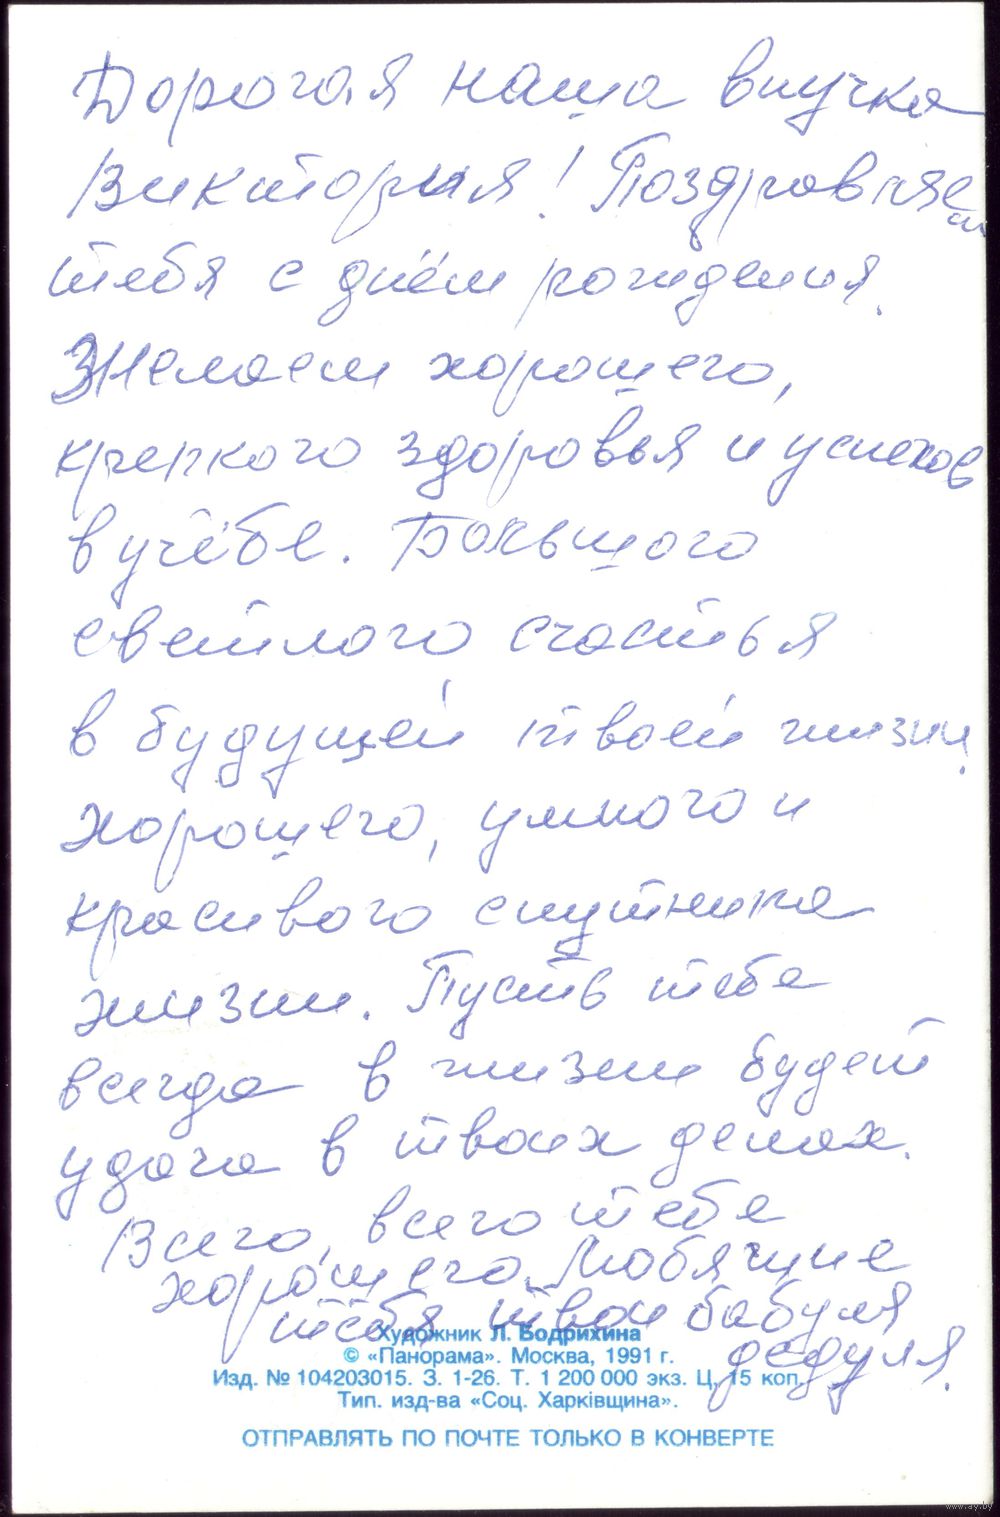 Дорогая наша внучка
Виктория! Поздравляем
тебя с днём рождения.
Желаем хорошего,
крепкого здоровья и успехов
в учёбе. Большого
светлого счастья
в будущей твоей жизни.
Хорошего, умного и
красивого спутника
жизни. Пусть тебе
всегда в жизни будет
удача в твоих делах.
Всего, всего тебе
хорошего. Любящие
тебя твои бабуля
дедуля.
Художник Л. Бодрихина
© «Панорама». Москва, 1991 г.
Изд. № 104203015. З. 1-26. Т. 1 200 000 экз. Ц. 15 коп.
Тип. изд-ва «Соц. Харкiвщина».
ОТПРАВЛЯТЬ ПО ПОЧТЕ ТОЛЬКО В КОНВЕРТЕ
www.ay.by